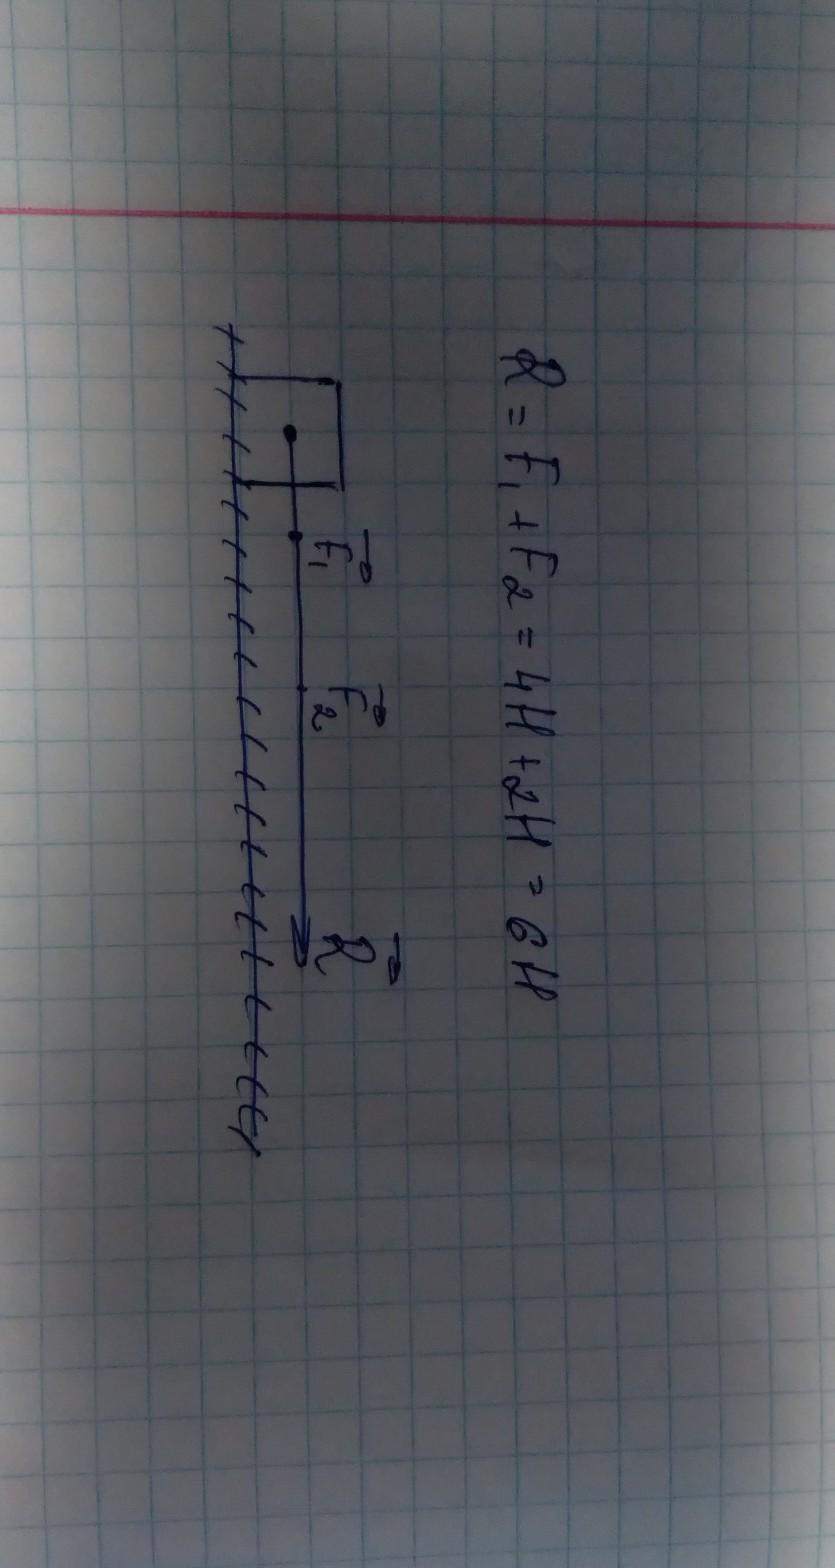 R = F₁ + F₂ = 4Н + 2Н = 6Н
F⃗₁ F⃗₂ R⃗